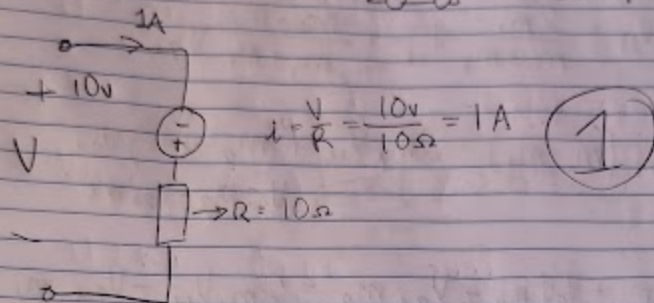 1A
+ 10v
-
+
i = V/R = 10v/10Ω = 1A
1
V
→R = 10Ω
-